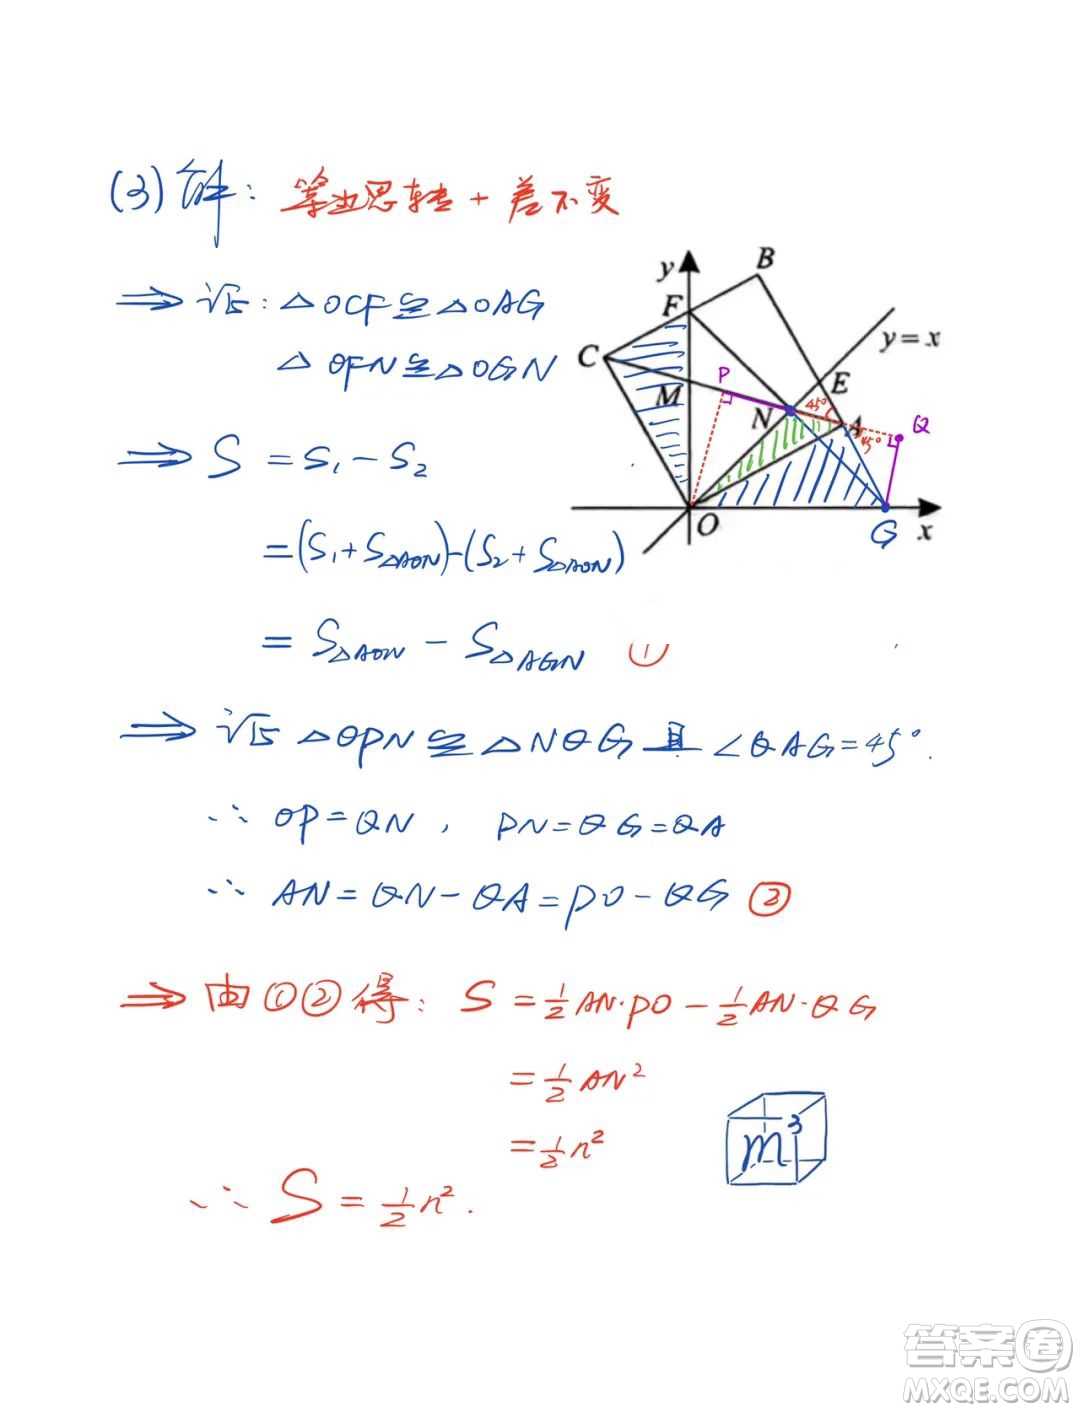 (3) 解: 等边思转 + 差不变
⇒ 证: △OCF≌△OAG
△OFN≌△OGN
⇒ S = S₁ - S₂
=(S₁+S△AON)-(S₂+S△AON)
= S△AON - S△AGN ①
⇒ 证 △OPN≌△NQG 且 ∠QAG=45°.
∴ OP=QN, PN=QG=QA
∴ AN=QN-QA=PO-QG ②
⇒ 由①②得: S=½AN·PO-½AN·QG
=½AN²
=½n²
∴ S=½n².
y
B
F
y=x
C
P
E
M
45°
N
A
Q
45°
O
G
x
m³
答案圈
MXQE.COM